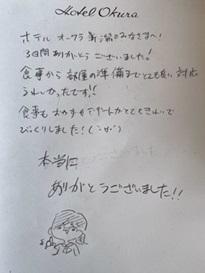 Hotel Okura
ホテル オークラ新潟のみなさまへ!
3日間ありがとうございました!
食事から部屋の準備までとても良い対応
うれしかったです!!
食事も おかずやデザートがとてもきれいで
びっくりしました!
本当に
ありがとうございました!!